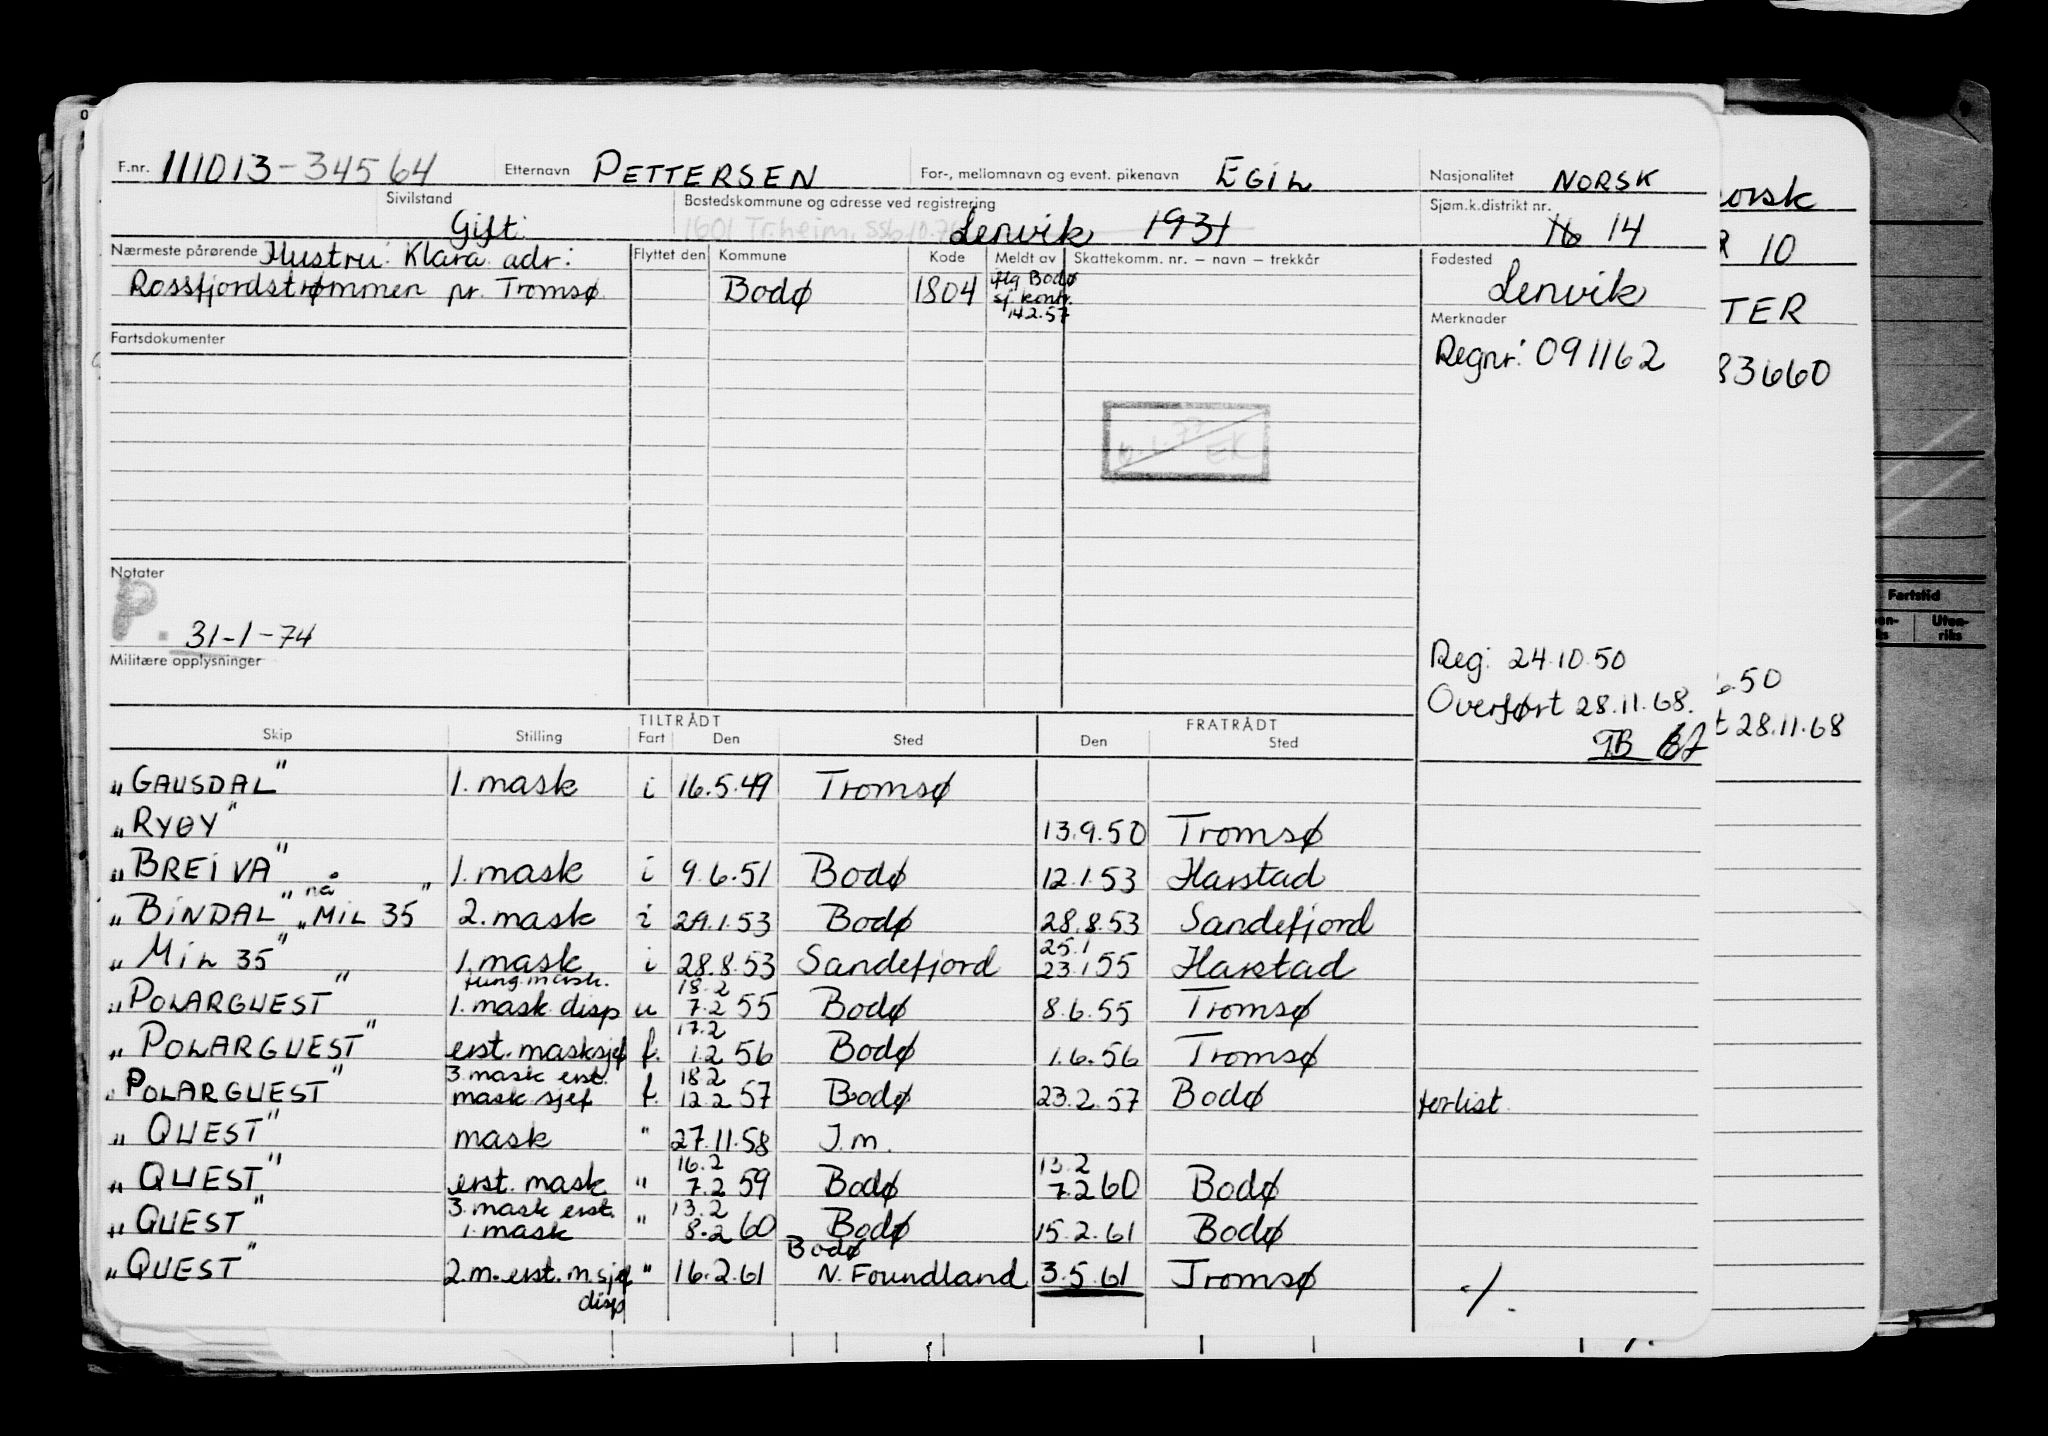 F.nr. 111013-34564 Etternavn PETTERSEN For-, mellomnavn og event. pikenavn EGIL Nasjonalitet NORSK
Sivilstand Gift. Bostedskommune og adresse ved registrering Lenvik 1931 Sjøm.k.distrikt nr. 16 14
1601 Tr.heim,
Nærmeste pårørende Hustru: Klara adr: Flyttet den Kommune Kode Meldt av Skattekomm. nr. – navn – trekkår Fødested
Rossfjordstrømmen pr. Tromsø. Bodø 1804 iflg Bodø sj. kontr. 14.2.57 Lenvik
Fartsdokumenter Merknader
Regnr: 091162
EK
Notater
P. 31-1-74
Militære opplysninger
Reg: 24.10.50
Overført 28.11.68.
TILTRÅDT FRATRÅDT
Skip Stilling Fart Den Sted Den Sted
"GAUSDAL" 1. mask i 16.5.49 Tromsø
"RYØY" 13.9.50 Tromsø
"BREIVA" 1. mask i 9.6.51 Bodø 12.1.53 Harstad
"BINDAL" nå "MIL 35" 2. mask i 29.1.53 Bodø 28.8.53 Sandefjord
"MIL 35" 1. mask i 28.8.53 Sandefjord 25.1 23.1 55 Harstad
"POLARQUEST" fung. mask. 1. mask disp u 18.2 7.2 55 Bodø 8.6.55 Tromsø
"POLARQUEST" erst. masksjef f. 17.2 1.2 56 Bodø 1.6.56 Tromsø
"POLARQUEST" 3. mask erst. mask sjef f. 18.2 12.2 57 Bodø 23.2.57 Bodø forlist.
"QUEST" mask " 27.11.58 J.m.
"QUEST" erst. mask " 16.2 7.2 59 Bodø 13.2 7.2 60 Bodø
"QUEST" 3. mask erst. 1. mask " 13.2 8.2 60 Bodø 15.2.61 Bodø
"QUEST" 2.m. erst. m.sjef disp " 16.2.61 Bodø N. Foundland 3.5.61 Tromsø -/.
orsk
R 10
TER
83660
.50
t 28.11.68
Fartstid
Uten-
riks